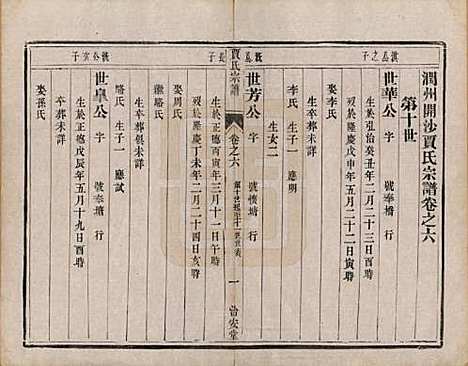 潤州開沙賈氏宗譜卷之六
第十世
世華公 字 號奉橋 行
生於弘治癸丑年二月二十三日酉時
歿於隆慶戊申年五月二十一日寅時
娶李氏 生子一 應明
生女二
世芳公 字 號懷塘 行
生於正德丙寅年三月十一日午時
歿於隆慶丁未年二月二十四日亥時
娶周氏
繼駱氏
生卒葬俱未詳
駱氏 生子一 應試
世阜公 字 號奉塘 行
生於正德戊辰年五月十九日酉時
卒葬未詳
娶孫氏
賈氏宗譜
卷之六
一
當安堂